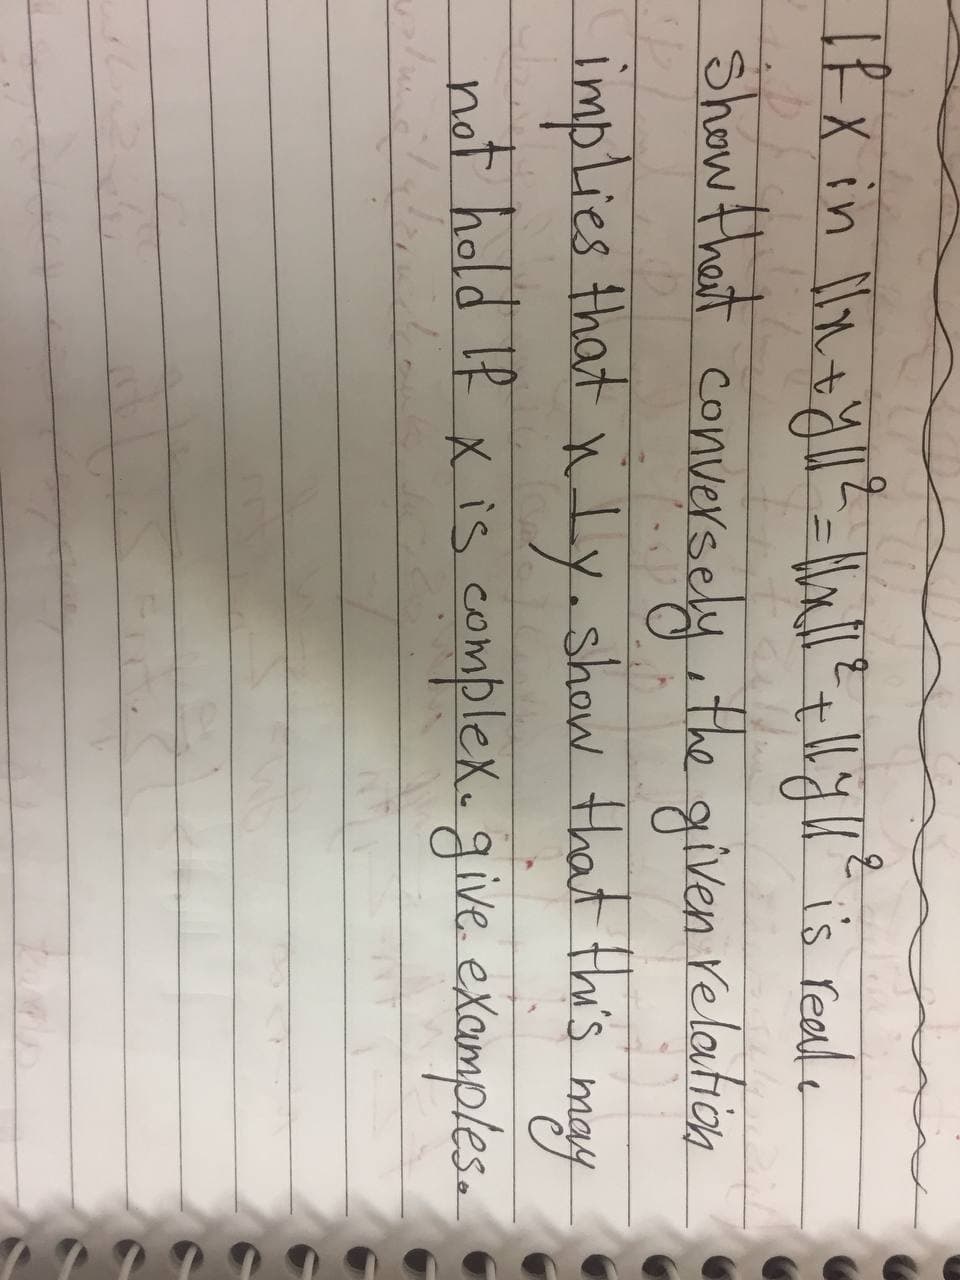 If X in ||x+y||² = ||x||² + ||y||² is real.
Show that conversely, the given relation
implies that x ⊥ y. show that this may
not hold If x is complex. give examples.